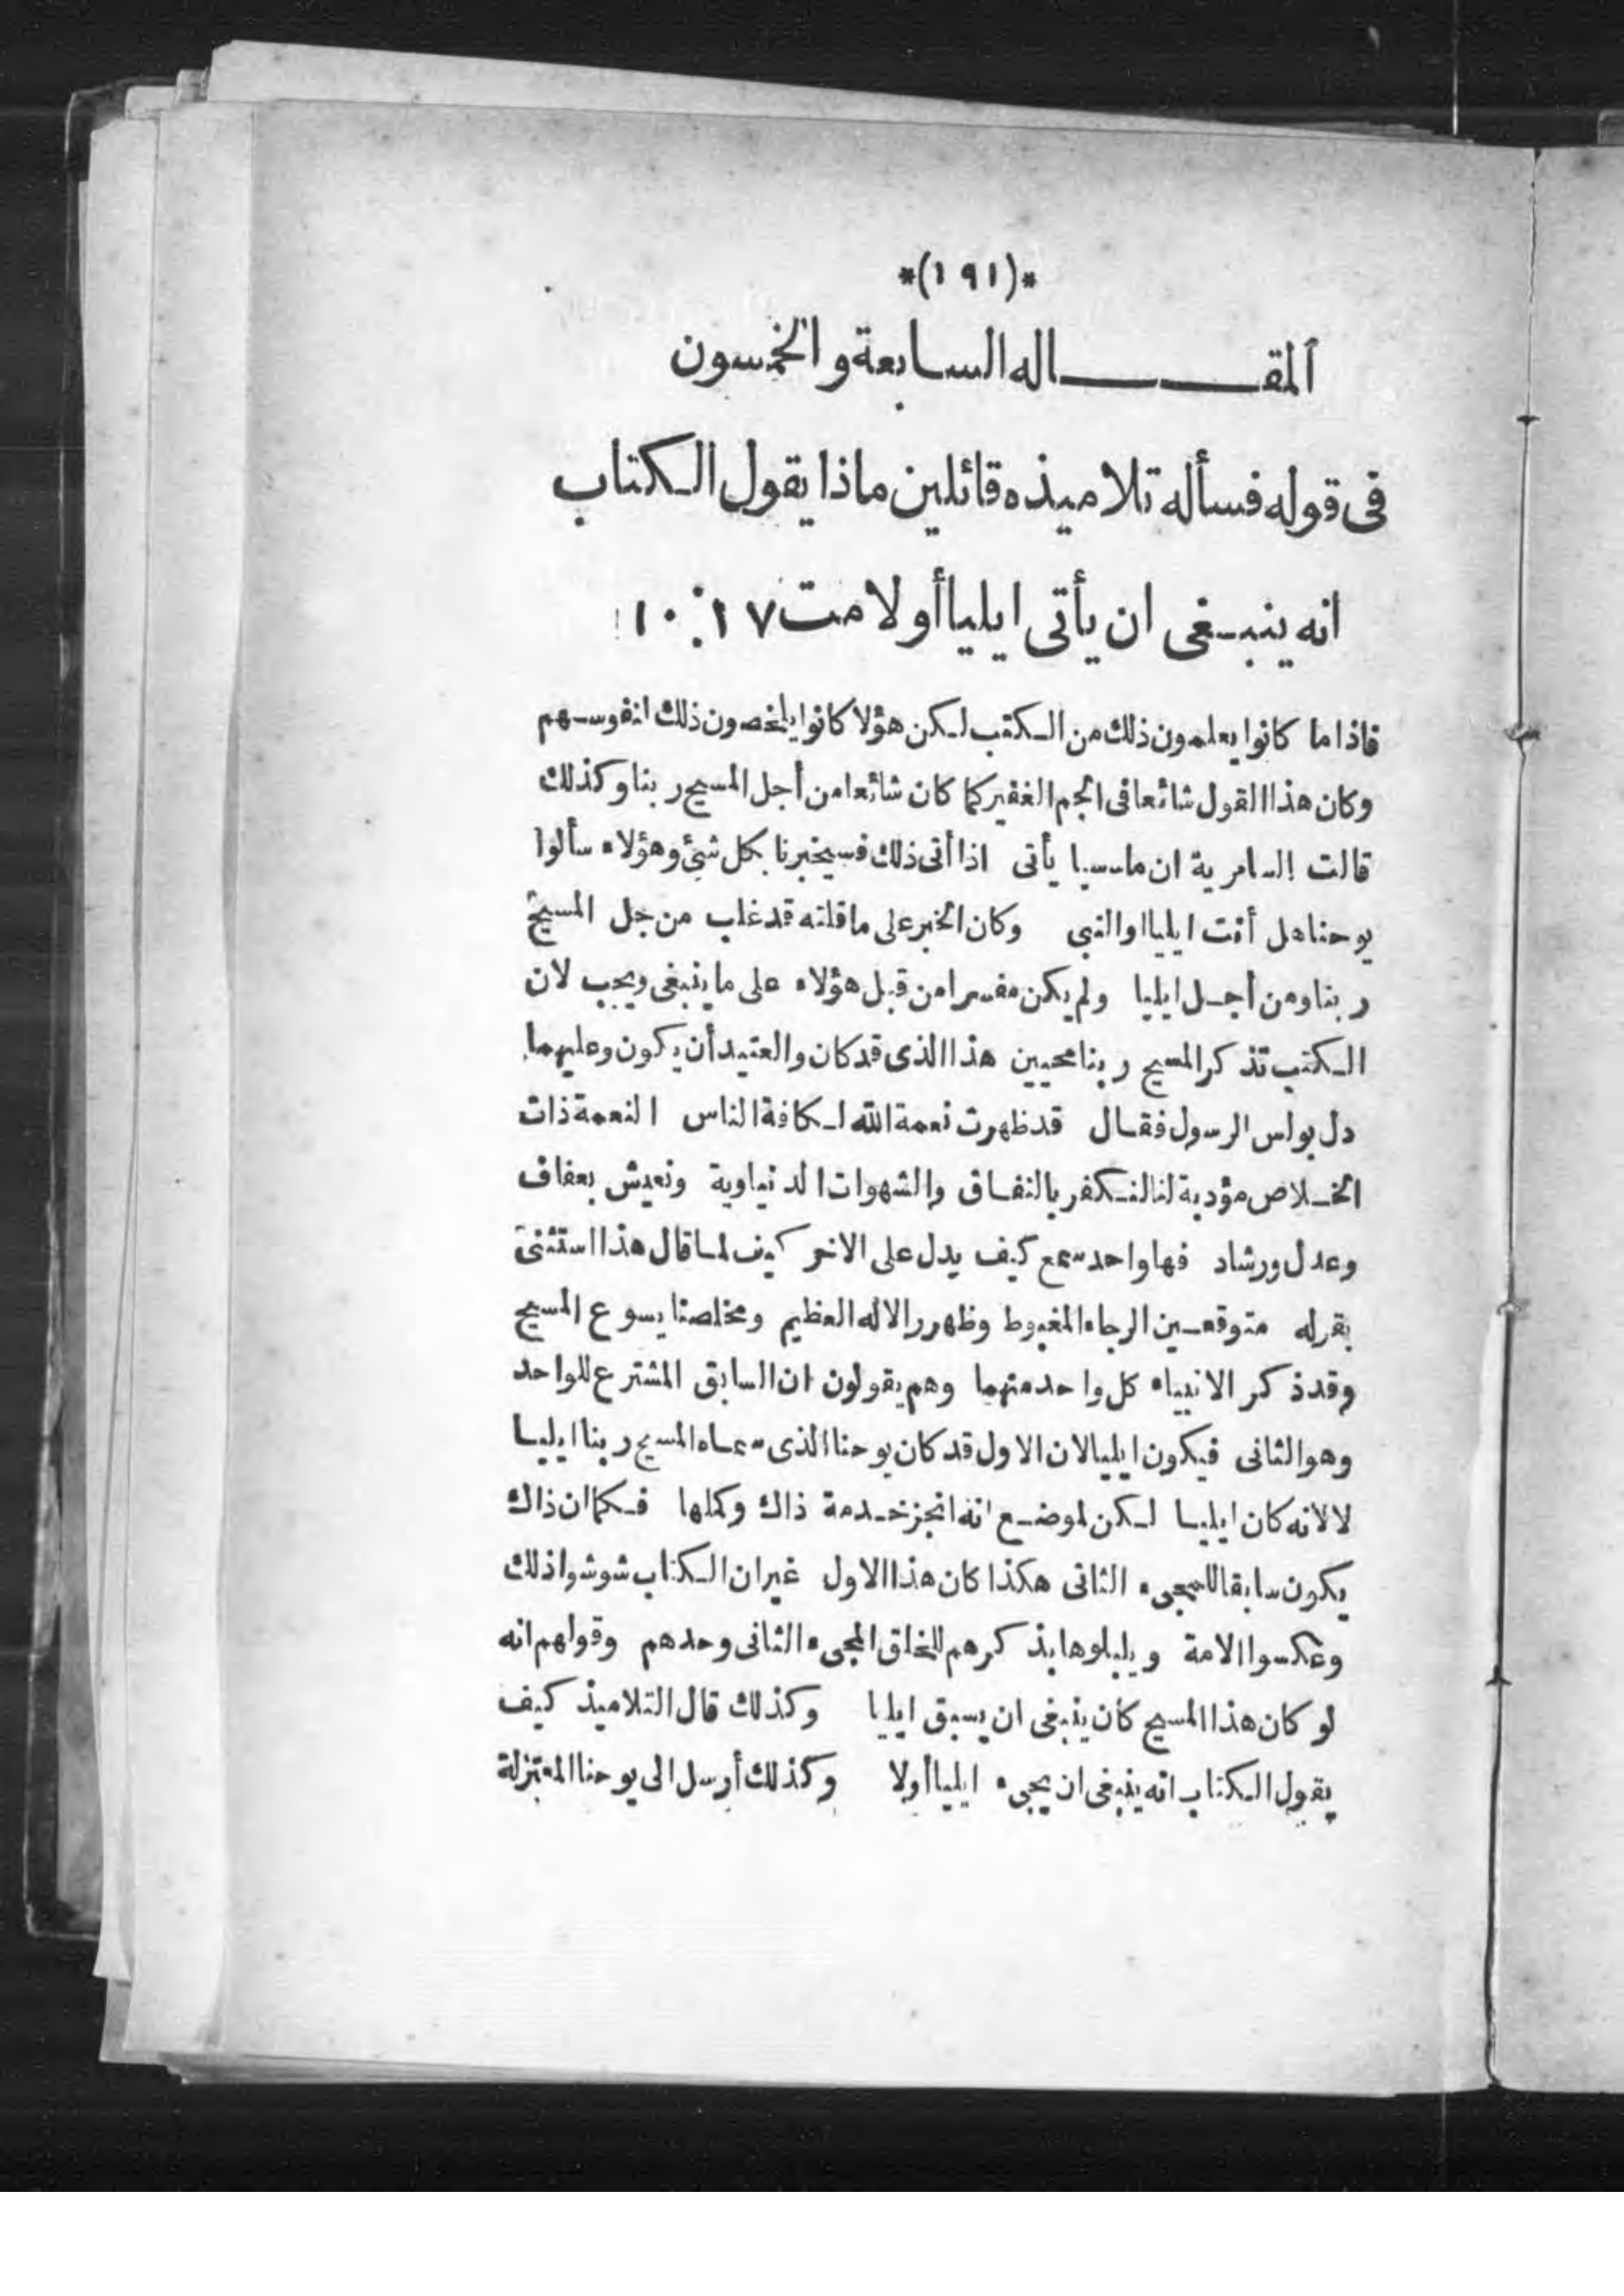 *(١٩١)*
المقـــاله السابعة والخمسون
فى قوله فسأله تلاميذه قائلين ماذا يقول الكتاب
انه ينبغى ان يأتى ايليا أولا مت ١٧: ١٠
فاذا ما كانوا يعلمون ذلك من الكتب لكن هؤلا كانوا يلخصون ذلك انفوسهم
وكان هذا القول شائعا فى الجم الغفير كما كان شائعا من أجل المسيح ربنا وكذلك
قالت السامرية ان ماسيا يأتى اذا أتى ذلك فسيخبرنا بكل شئ وهؤلاء سألوا
يوحنا هل أنت ايليا او النبى وكان الخبر على ما قلته قد غلب من جل المسيح
ربنا ومن أجل ايليا ولم يكن مفسرا من قبل هؤلاء على ما ينبغى ويجب لان
الكتب تذكر المسيح ربنا مجيين هذا الذى قد كان والعتيد أن يكون وعليهما
دل بولس الرسول فقال قد ظهرت نعمة الله لكافة الناس النعمة ذات
الخلاص مؤدبة لنا لنكفر بالنفاق والشهوات الدنياوية ونعيش بعفاف
وعدل ورشاد فها واحد سمع كيف يدل على الاخر كيف لما قال هذا استثنى
بقوله متوقعين الرجاء المغبوط وظهور الاله العظيم ومخلصنا يسوع المسيح
وقد ذكر الانبياء كل واحد منهما وهم يقولون ان السابق المشترع للواحد
وهو الثانى فيكون ايليا لان الاول قد كان يوحنا الذى سماه المسيح ربنا ايليا
لا لانه كان ايليا لكن لموضع انه انجز خدمة ذاك وكملها فكما ان ذاك
يكون سابقا للمجىء الثانى هكذا كان هذا الاول غير ان الكتاب شوشوا ذلك
وعكسوا الامة وبلبلوها بذكرهم للخلق المجىء الثانى وحدهم وقولهم انه
لو كان هذا المسيح كان ينبغى ان يسبق ايليا وكذلك قال التلاميذ كيف
يقول الكتاب انه ينبغى ان يجىء ايليا أولا وكذلك أرسل الى يوحنا المعتزلة